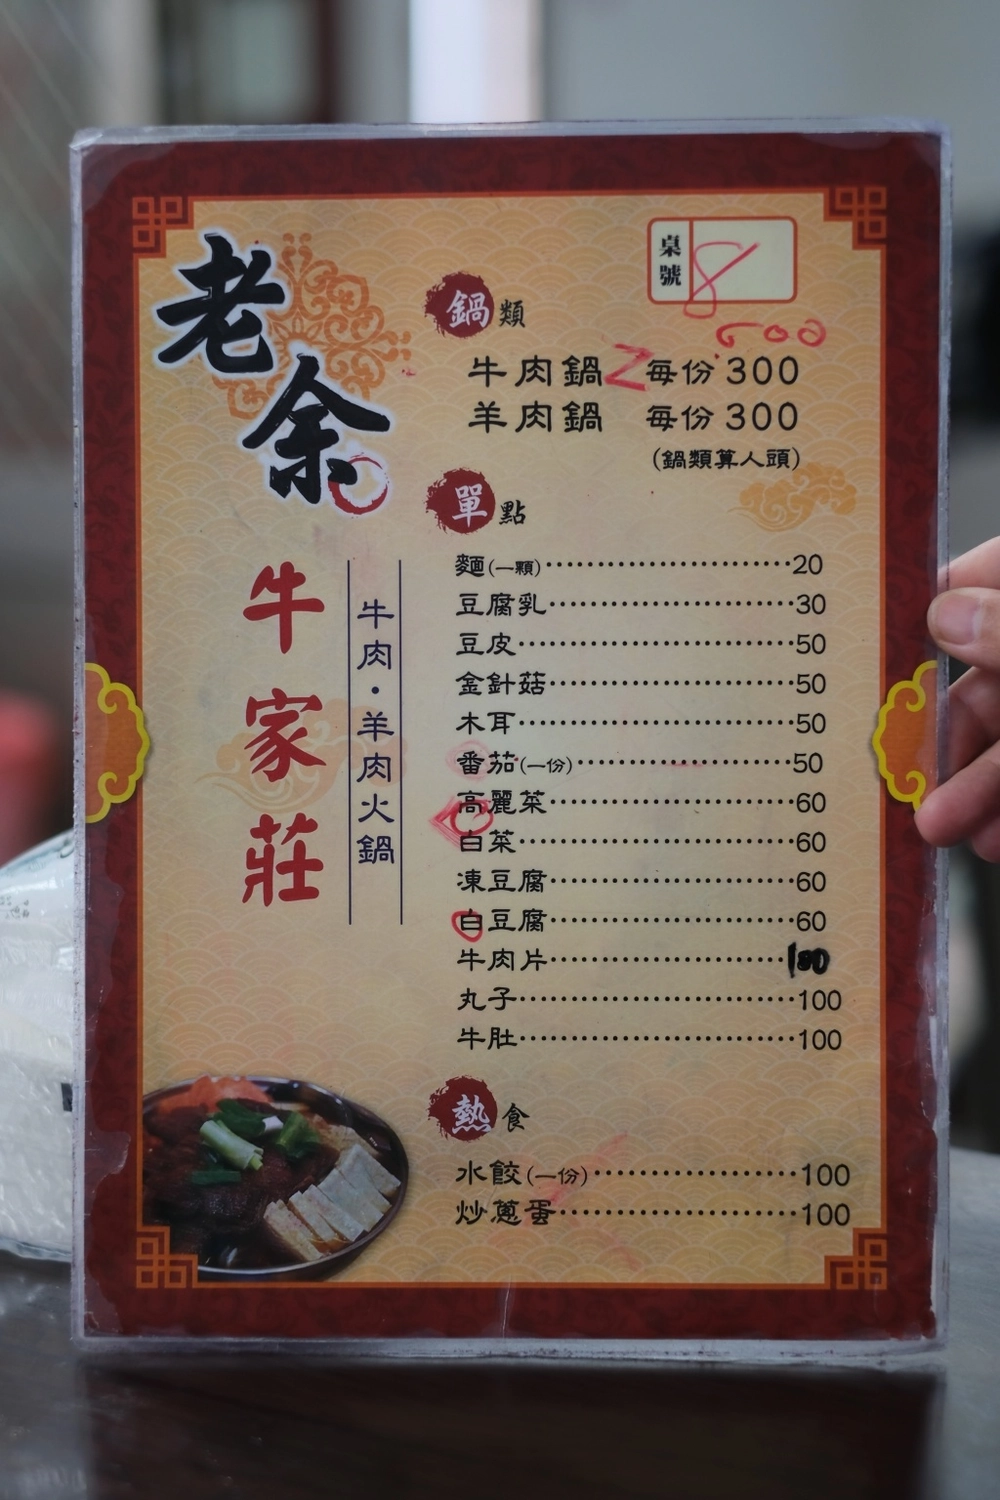 老余
牛家莊
牛肉·羊肉火鍋
桌號 8
600
鍋類
牛肉鍋 2 每份 300
羊肉鍋 每份 300
(鍋類算人頭)
單點
麵(一顆)························20
豆腐乳························30
豆皮························50
金針菇························50
木耳························50
番茄(一份)························50
高麗菜························60
白菜························60
凍豆腐························60
白豆腐························60
牛肉片························100
丸子························100
牛肚························100
熱食
水餃(一份)····················100
炒蔥蛋························100